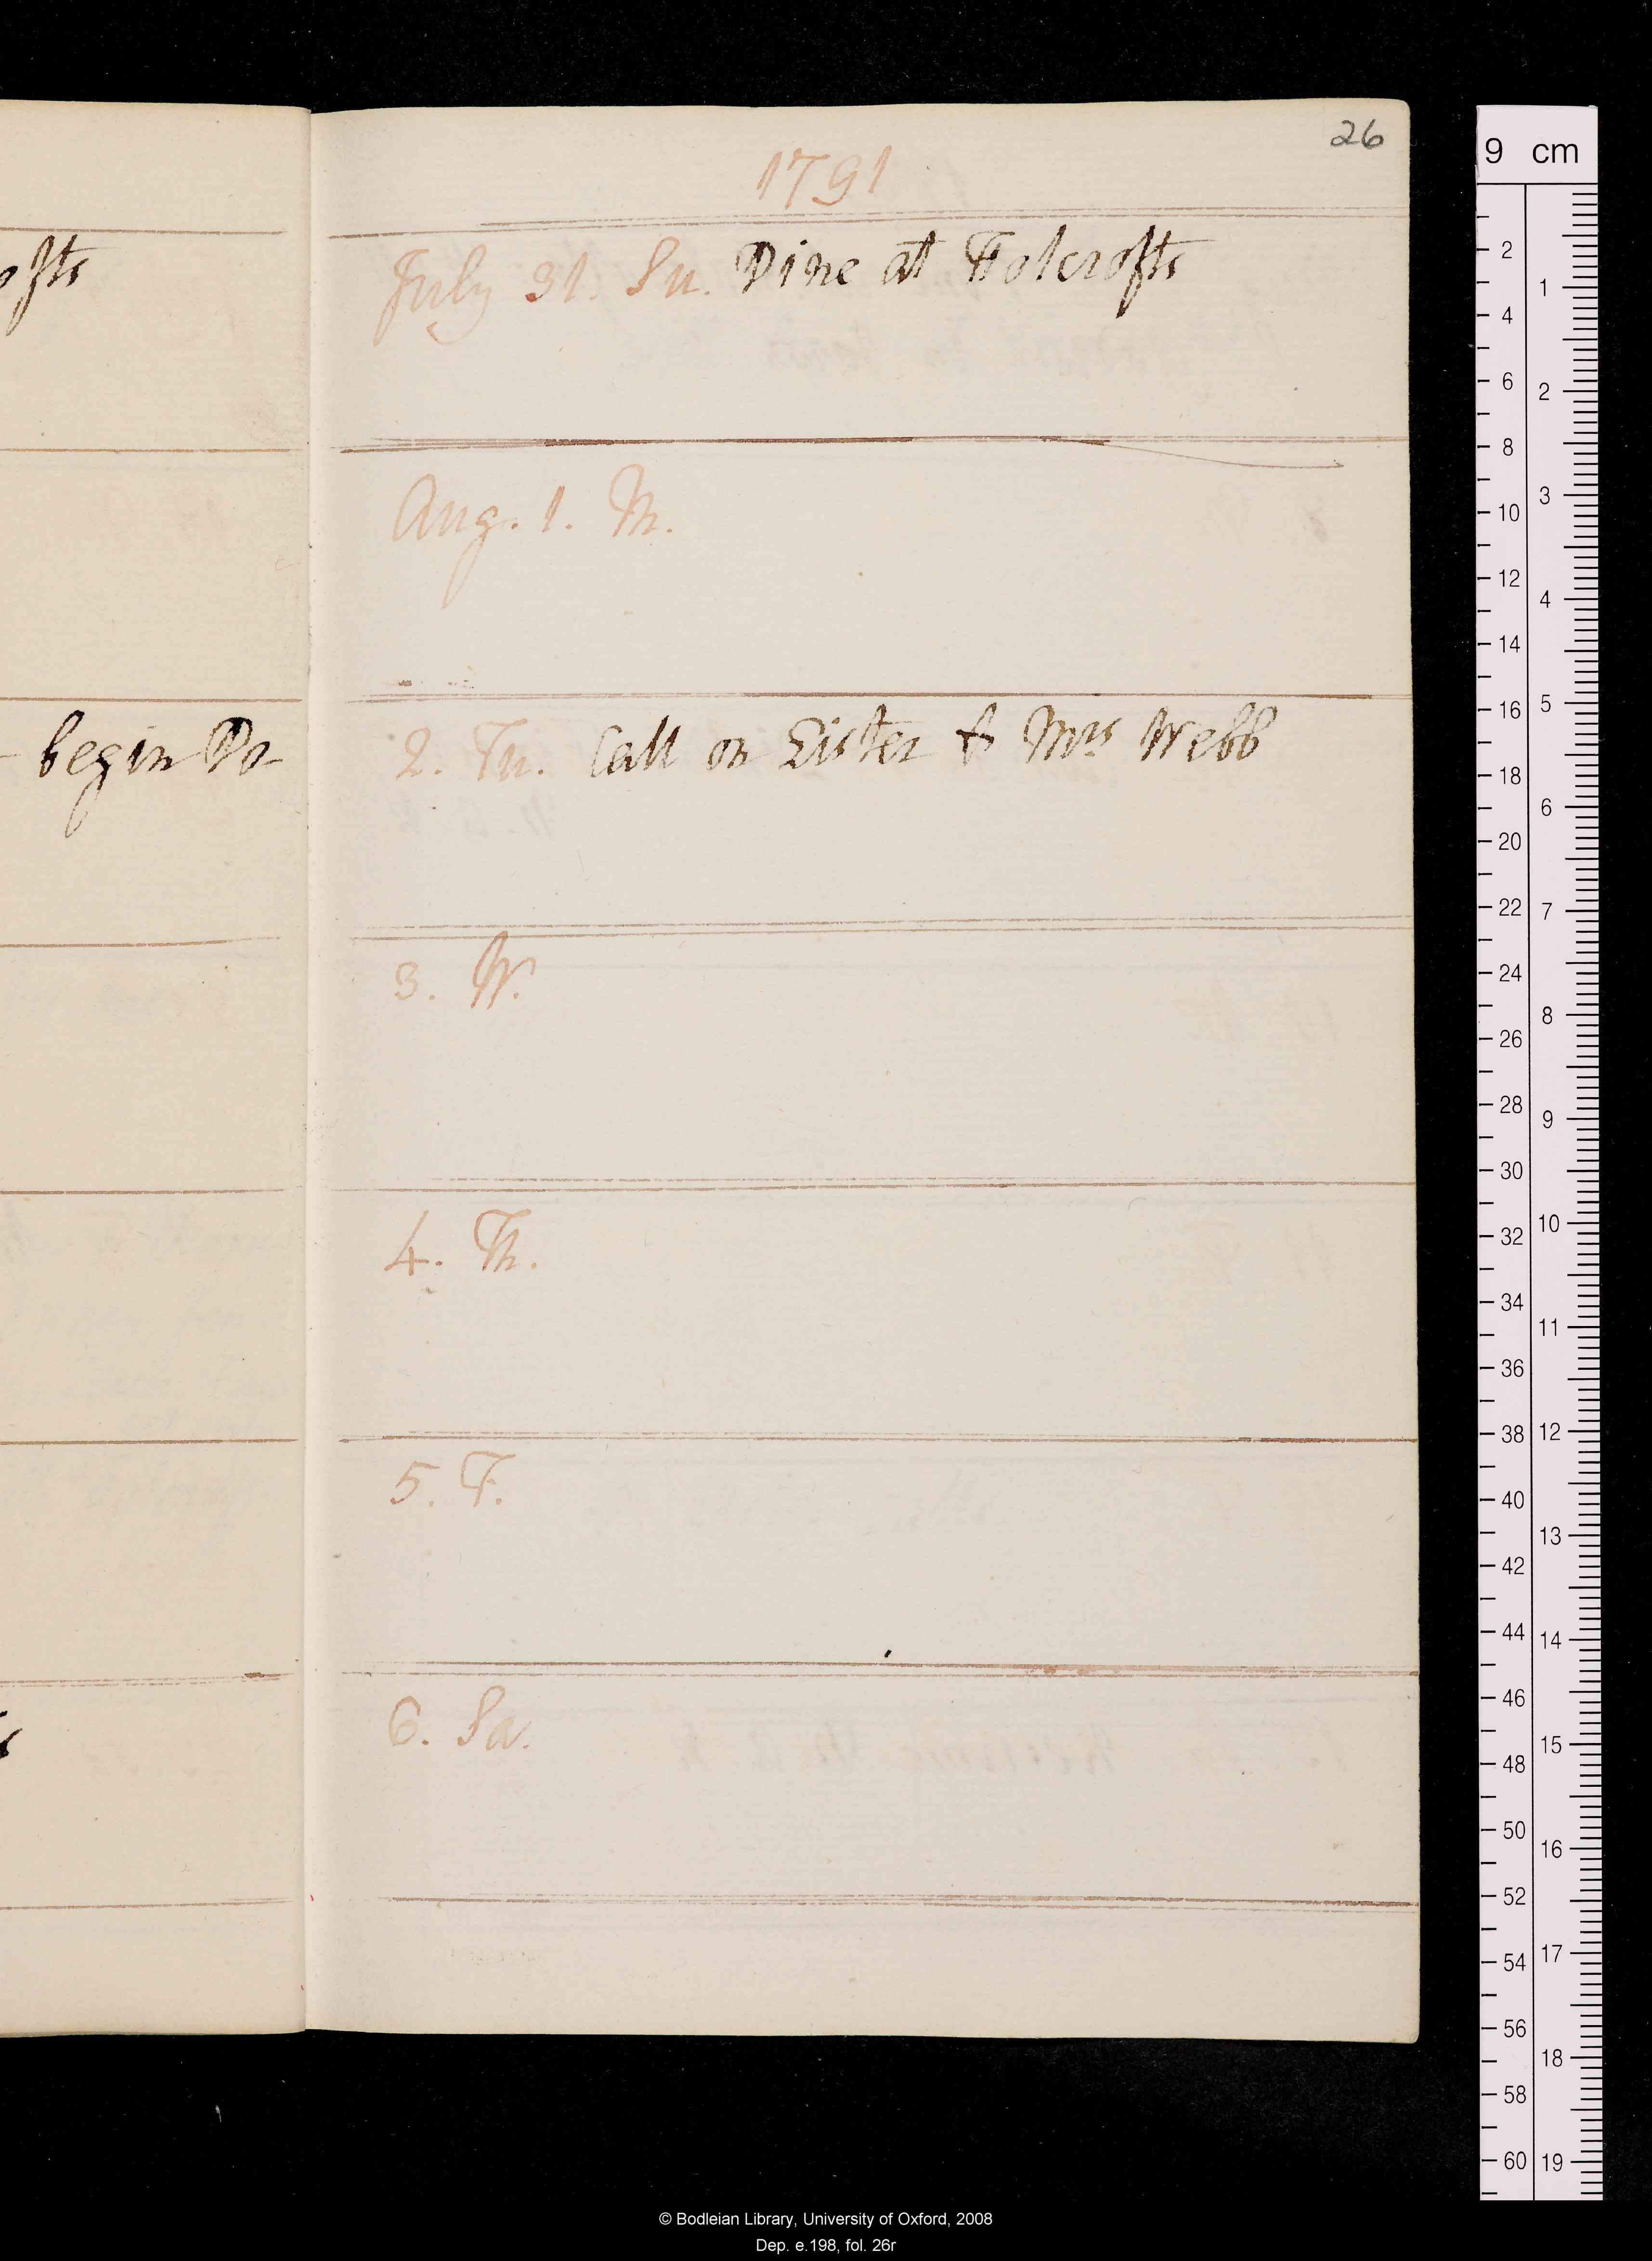 26
1791
ofts
July 31. Su. Dine at Holcrofts
Aug. 1. M.
begin Po-
2. Tu. Call on Sister & Mrs Webb
3. W.
4. Th.
5. F.
6. Sa.
9 cm
2
4
6
8
10
12
14
16
18
20
22
24
26
28
30
32
34
36
38
40
42
44
46
48
50
52
54
56
58
60
1
2
3
4
5
6
7
8
9
10
11
12
13
14
15
16
17
18
19
© Bodleian Library, University of Oxford, 2008
Dep. e.198, fol. 26r